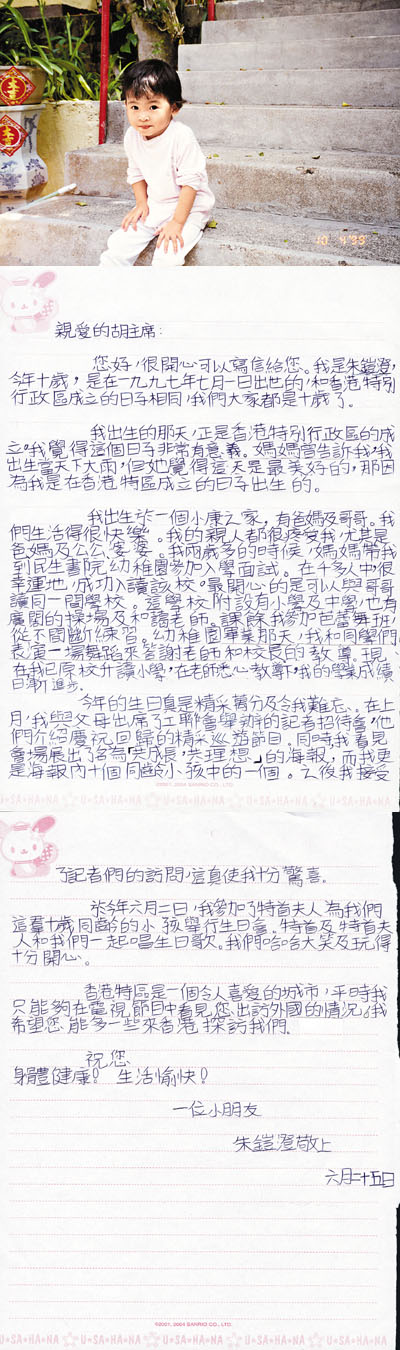 10 4'99
親愛的胡主席:
您好,很開心可以寫信給您。我是朱鎧澄,
今年十歲,是在一九九七年七月一日出世的,和香港特別
行政區成立的日子相同,我們大家都是十歲了。
我出生的那天,正是香港特別行政區的成
立。我覺得這個日子非常有意義。媽媽曾告訴我,我
出生當天下大雨,但她覺得這天是最美好的,那因
為我是在香港特區成立的日子出生的。
我出生於一個小康之家,有爸媽及哥哥。我
們生活得很快樂。我的親人都很疼愛我,尤其是
爸媽及公公、婆婆。我兩歲多的時候,媽媽帶我
到民生書院幼稚園參加入學面試。在千多人中,很
幸運地,成功入讀該校。最開心的是可以與哥哥
讀同一間學校。這學校附設有小學及中學,也有
廣闊的操場及和諧老師。課餘我參加芭蕾舞班,
從不間斷練習。幼稚園畢業那天,我和同學們
表演一場舞蹈來答謝老師和校長的教導。現
在我已原校升讀小學,在老師悉心教導下,我的學業成績
日漸進步。
今年的生日真是精采萬分及令我難忘。在上
月,我與父母出席了工聯會舉辦的記者招待會,他
們介紹慶祝回歸的精采巡遊節目。同時,我看見
會場展出了名為「共成長,共理想」的海報,而我更
是海報內十個同齡小孩中的一個。之後我接受
©2001, 2004 SANRIO CO., LTD.
U★SA★HA★NA
了記者們的訪問,這真使我十分驚喜。
於今年六月二日,我參加了特首夫人為我們
這羣十歲同齡的小孩舉行生日會。特首及特首夫
人和我們一起唱生日歌。我們哈哈大笑及玩得
十分開心。
香港特區是一個令人喜愛的城市,平時我
只能夠在電視節目中看見您出訪外國的情況。我
希望您能多一些來香港探訪我們。
祝您
身體健康! 生活愉快!
一位小朋友
朱鎧澄敬上
六月二十五日
©2001, 2004 SANRIO CO., LTD.
U★SA★HA★NA